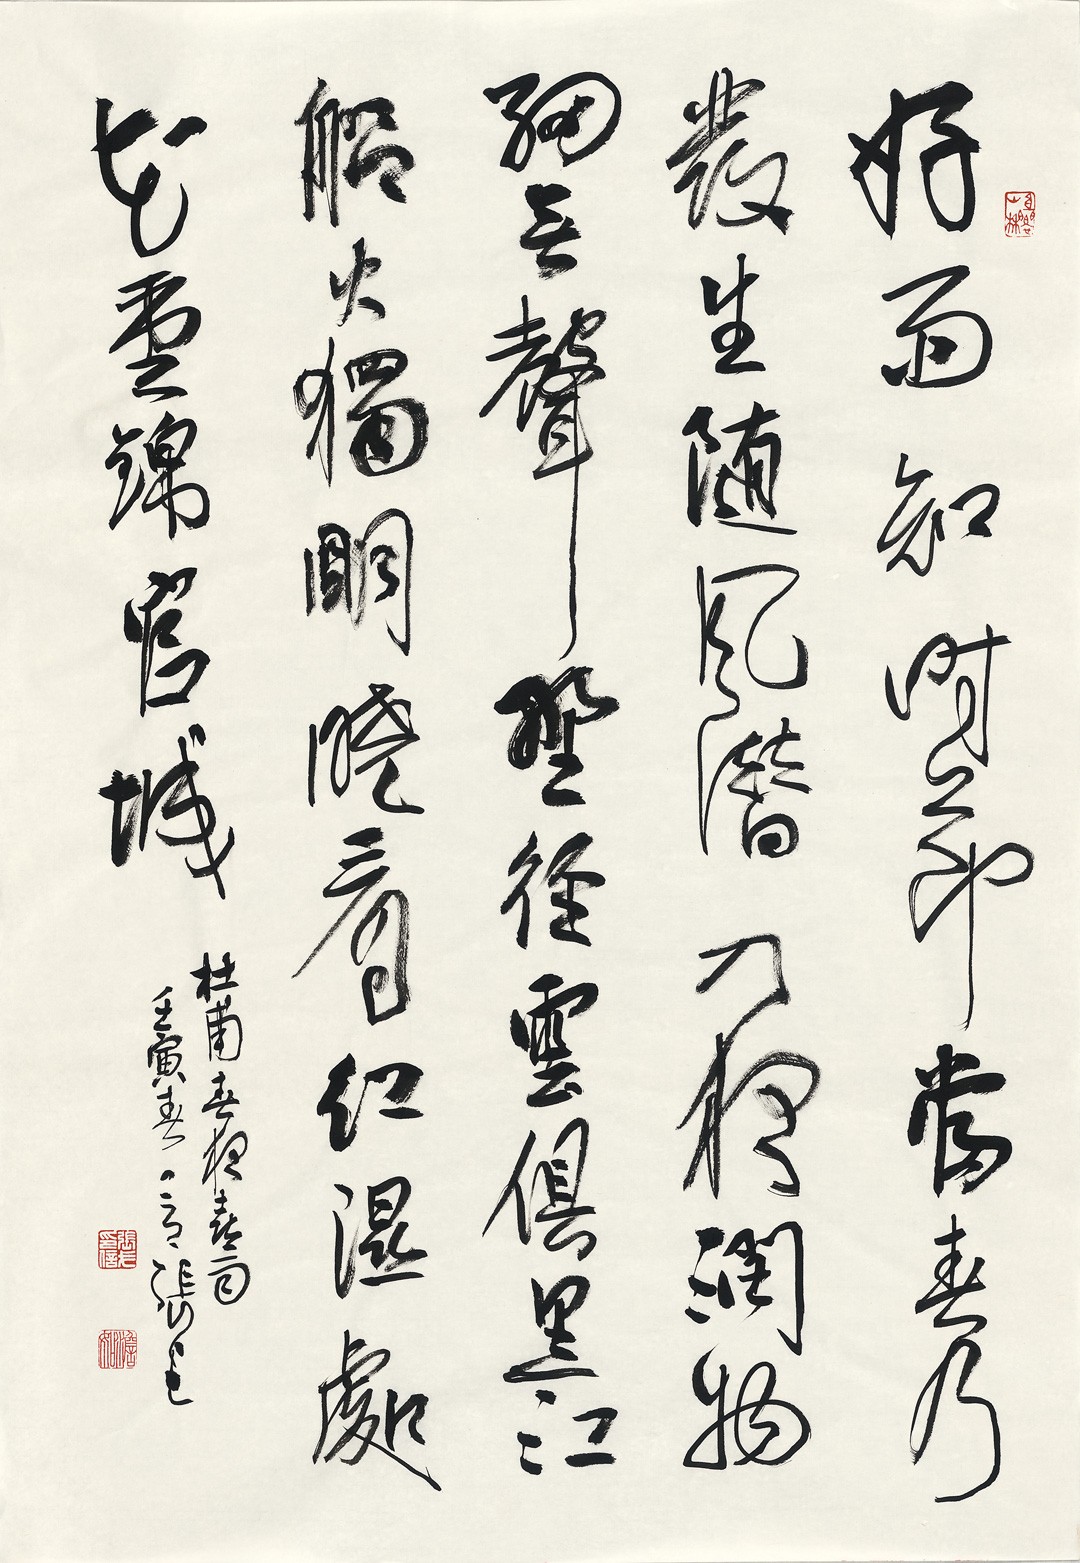 好雨知時節當春乃
發生随風潜入夜潤物
細無聲野徑雲俱黑江
船火獨明曉看紅湿處
花重錦官城
杜甫春夜喜雨
壬寅春 張